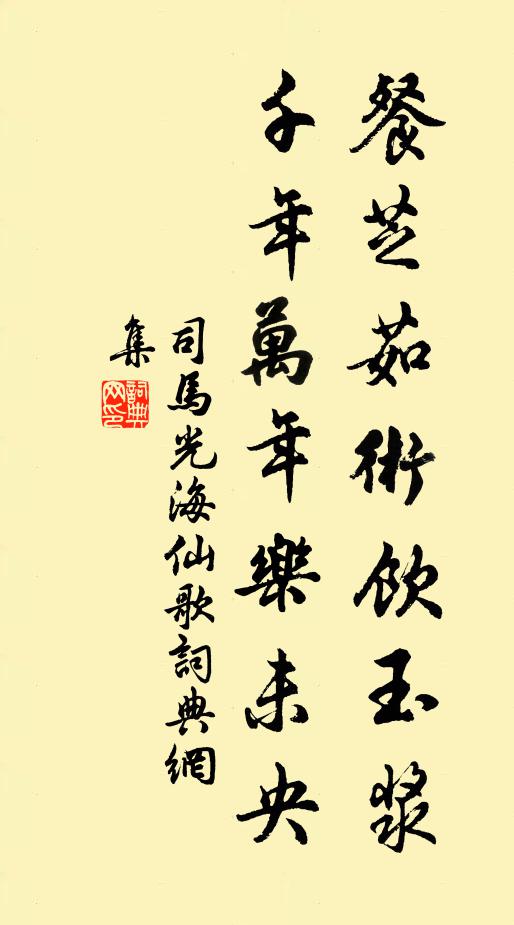 餐芝茹術飲玉漿
千年萬年樂未央
司馬光海仙歌詞典網
集
詞典網印